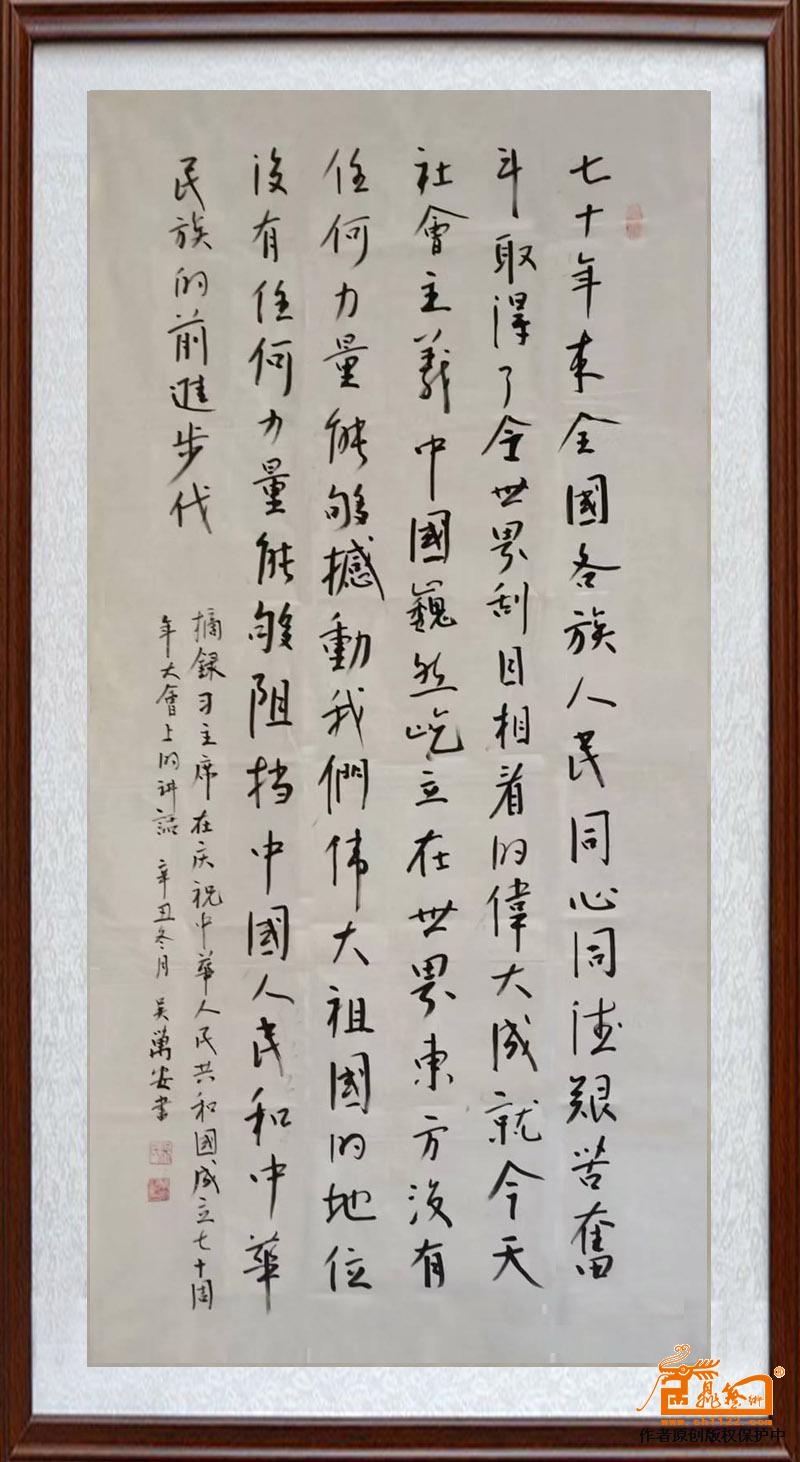 七十年来全國各族人民同心同德艱苦奮
斗取得了令世界刮目相看的偉大成就今天
社會主義中國巍然屹立在世界東方沒有
任何力量能够撼動我們偉大祖國的地位
沒有任何力量能够阻挡中國人民和中華
民族的前進步代
摘録习主席在庆祝中華人民共和國成立七十周
年大會上的讲話 辛丑冬月 吴萬安書
鼎藝術
www.sh1122.com
作者原创版权保护中